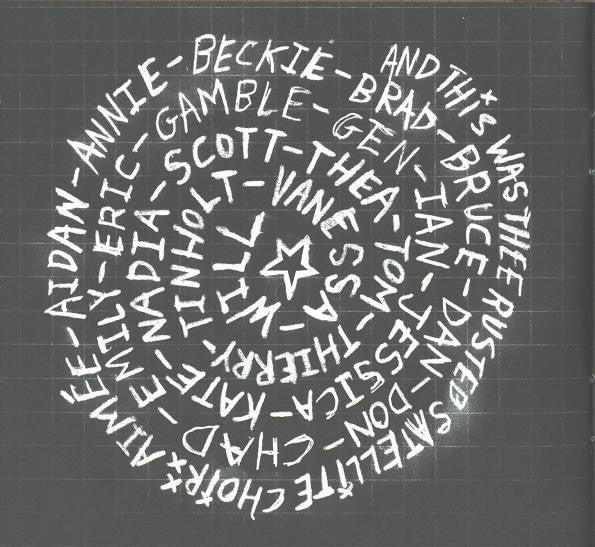 AND THiS WAS THEE RUSTED SATELLiTE CHOiR: AIMÉE - AIDAN - ANNIE - BECKIE - BRAD - BRUCE - DAN - DON - CHAD - EMILY - ERIC - GAMBLE - GEN - IAN - JESSICA - KATE - NADIA - SCOTT - THEA - TOM - THIERRY - TINHOLT - VANESSA - WILL